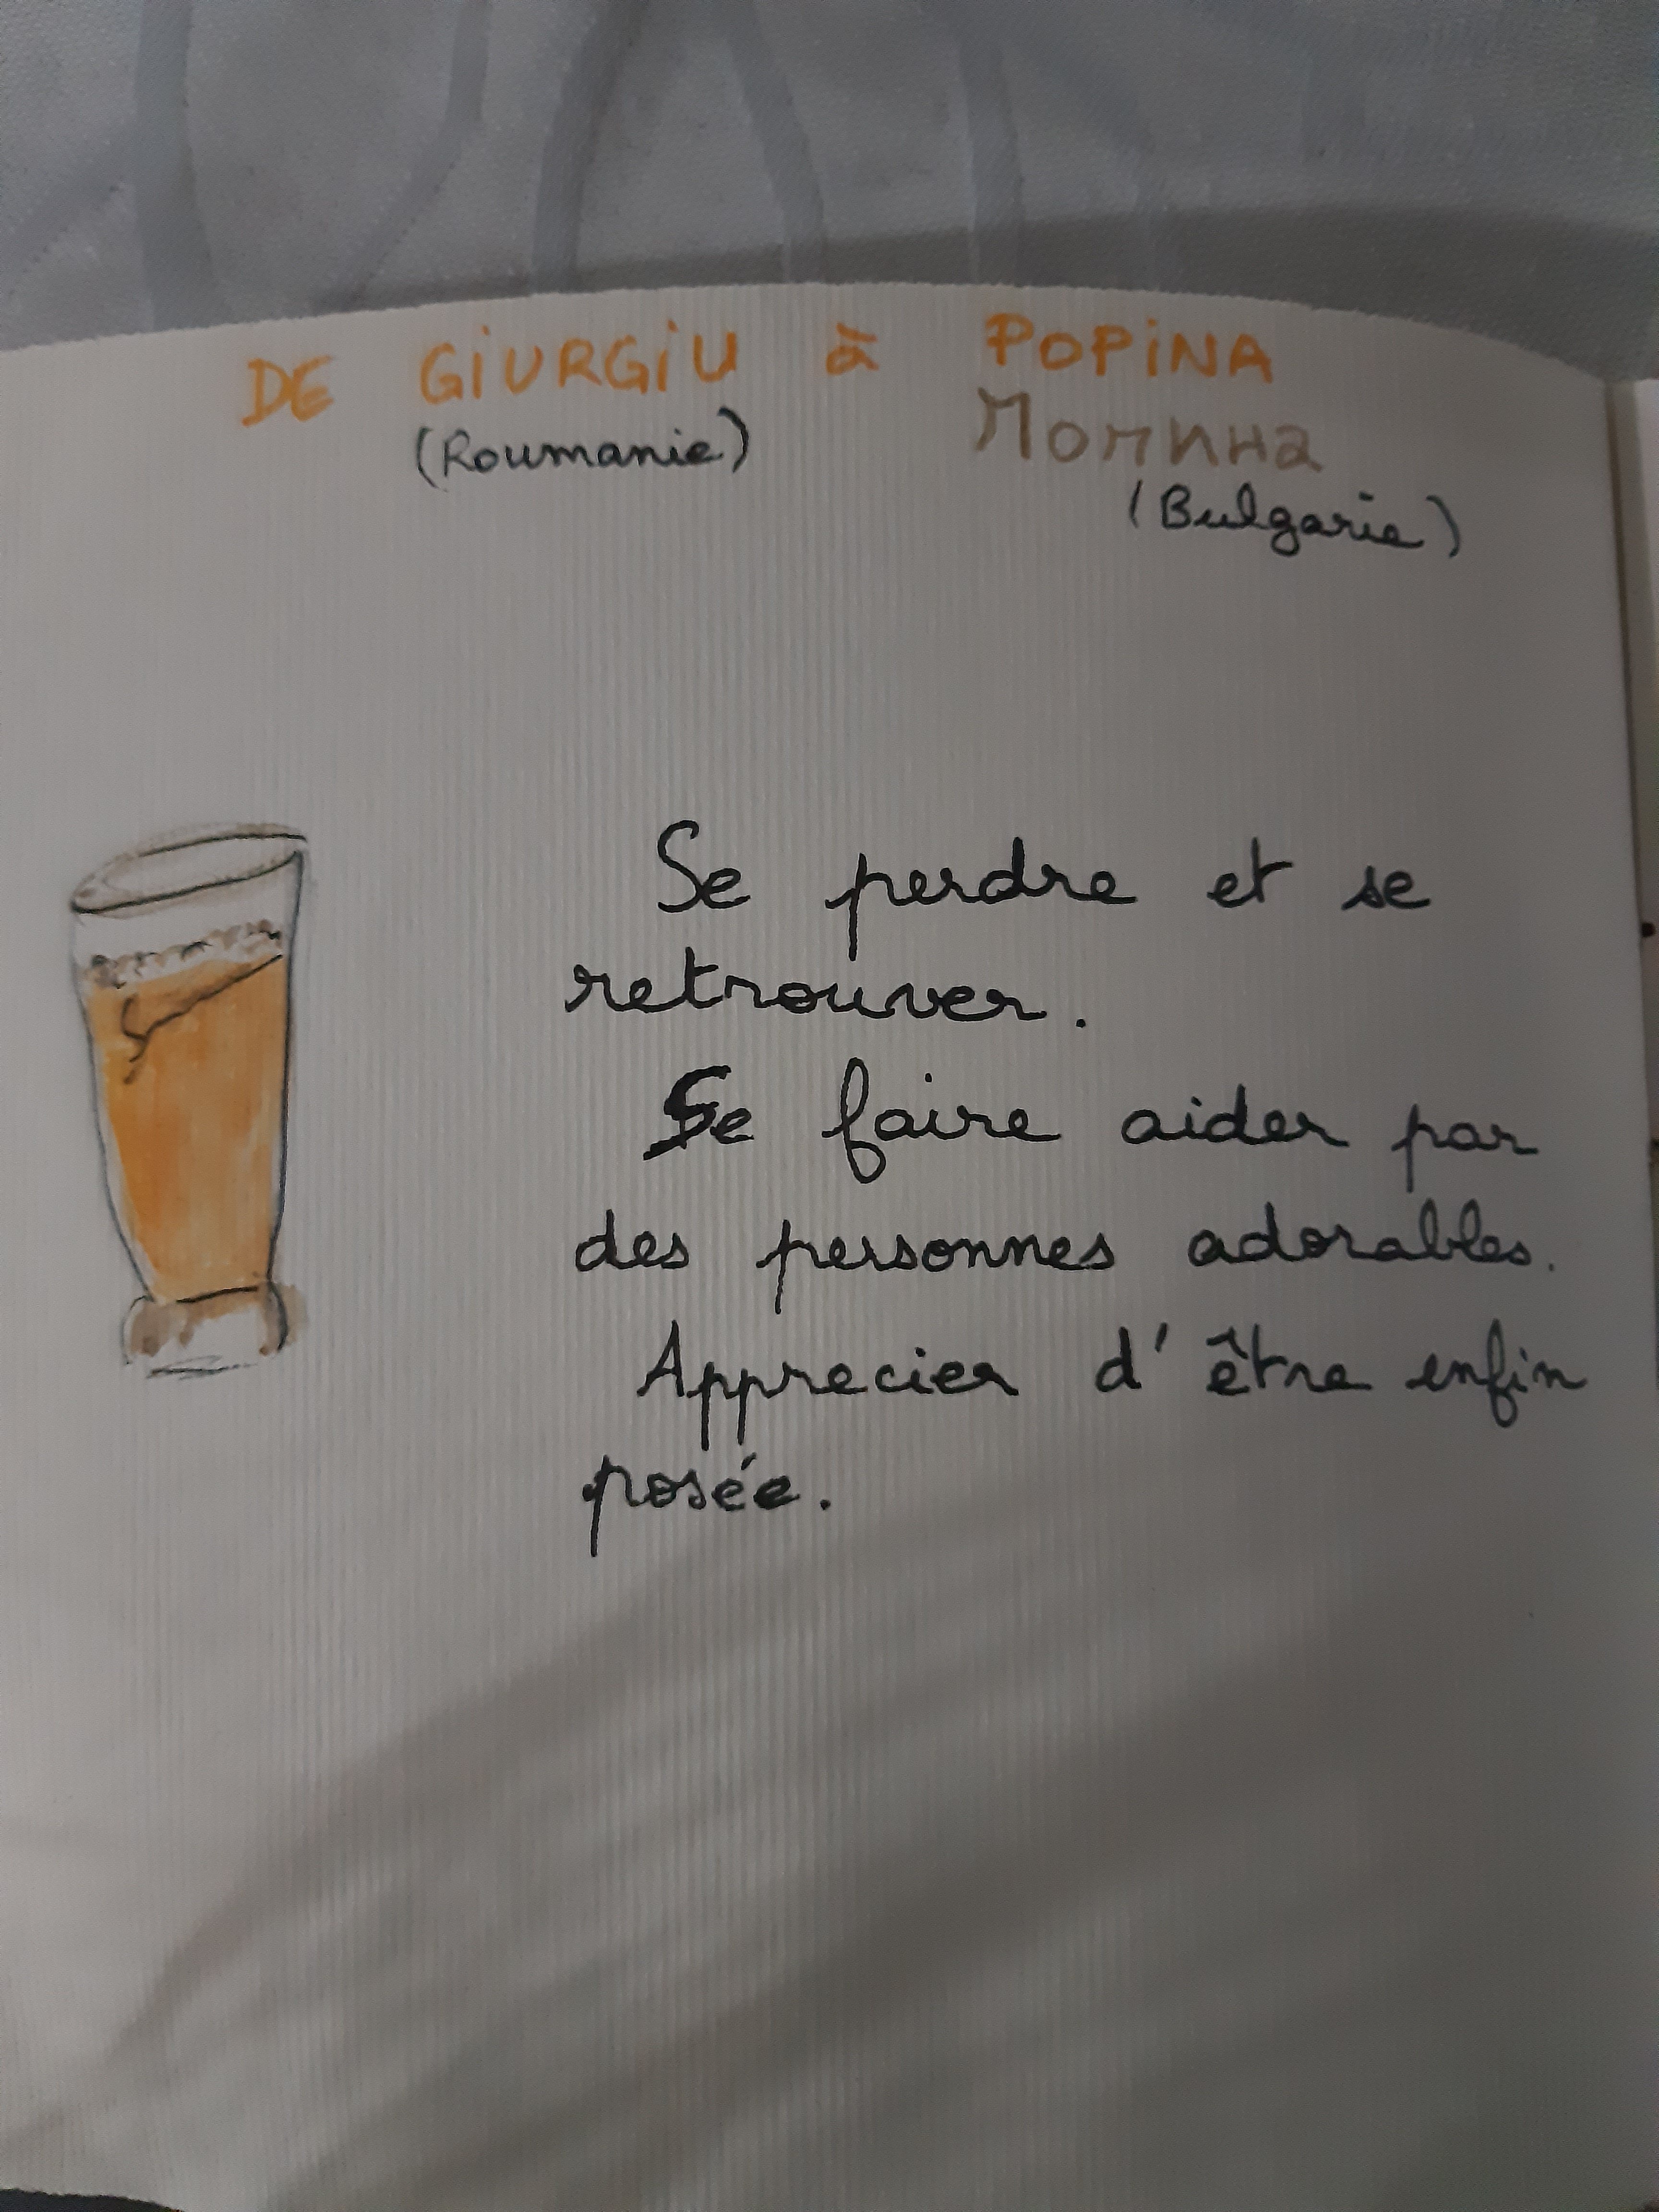 DE GiURGiU à POPiNA
(Roumanie) Попина
(Bulgarie)
Se perdre et se
retrouver.
Se faire aider par
des personnes adorables.
Apprecier d'être enfin
posée.